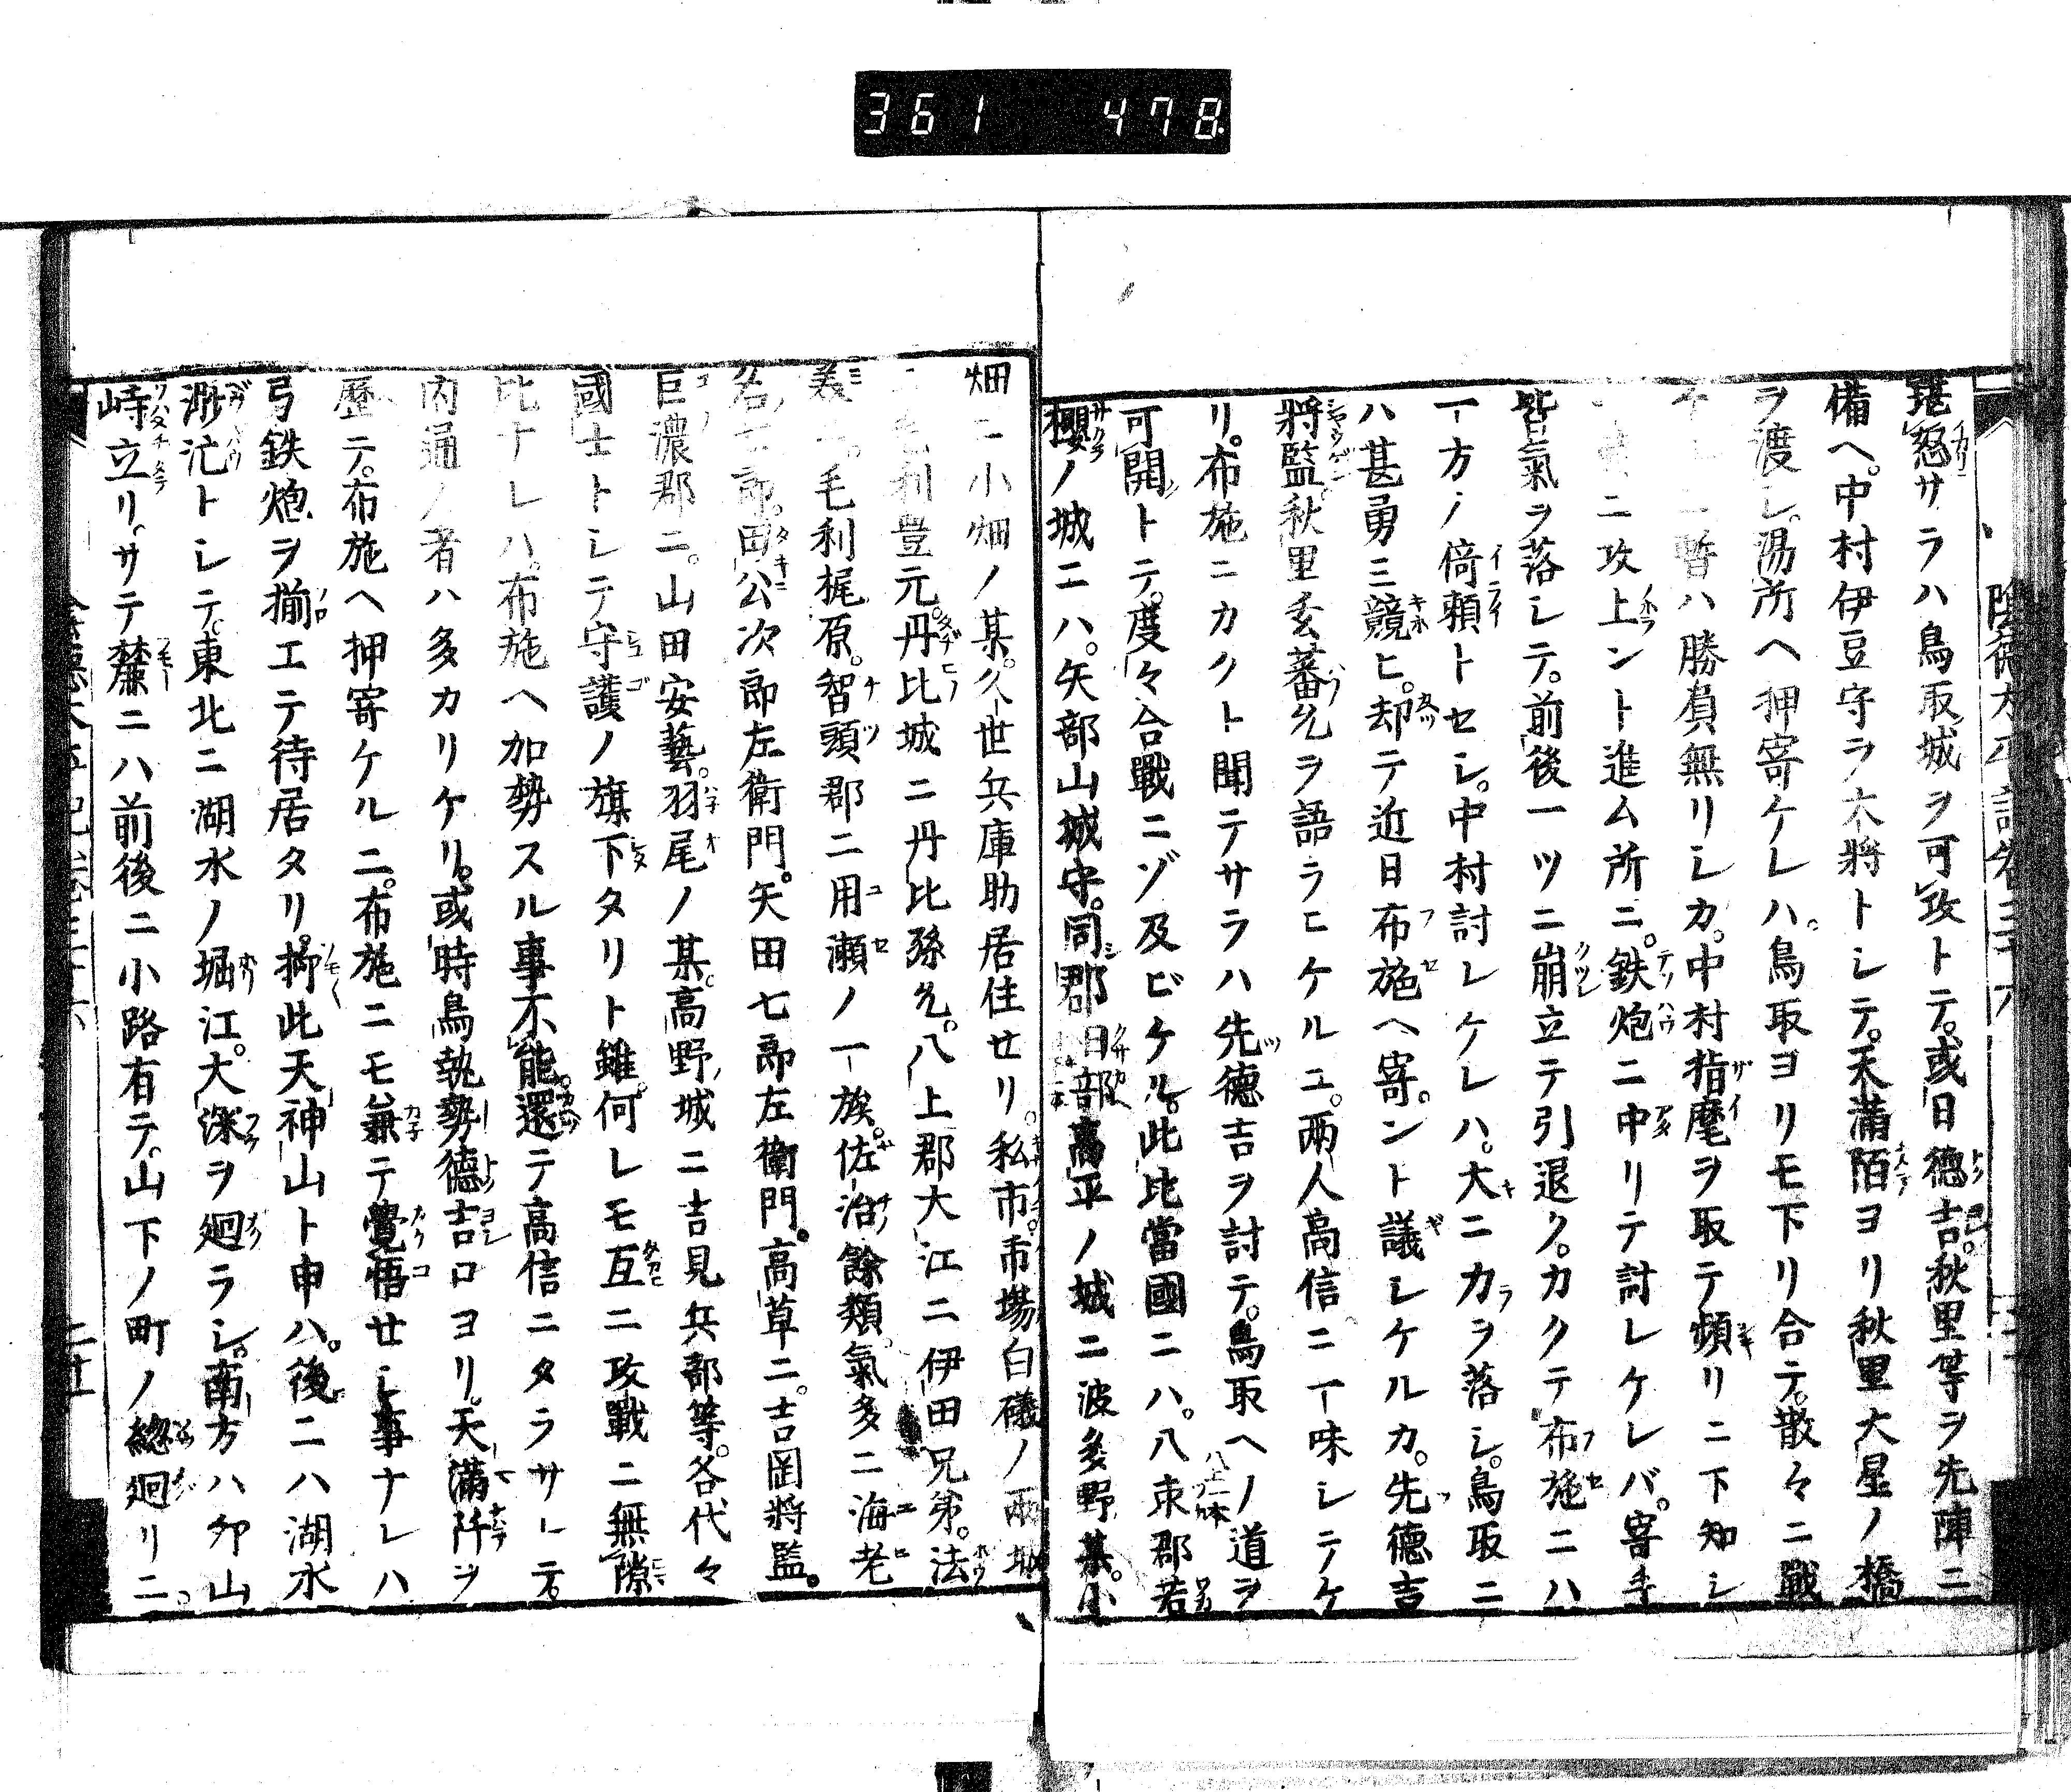 361 478
陰德太平記卷三十六
堪怒サラハ鳥取城ヲ可攻トテ。或日德吉。秋里等ヲ先陣ニ
備ヘ。中村伊豆守ヲ大將トシテ。天滿陌ヨリ秋里大星ノ橋
ヲ渡シ。湯所ヘ押寄ケレハ。鳥取ヨリモ下リ合テ。散々ニ戰
暫ハ勝負無リシカ。中村指麾ヲ取テ頻リニ下知シ
ニ攻上ント進ム所ニ。鉄炮ニ中リテ討レケレバ。寄手
皆氣ヲ落シテ。前後一ツニ崩立テ引退ク。カクテ布施ニハ
一方ノ倚頼トセシ。中村討レケレハ。大ニカヲ落シ。鳥取ニ
ハ甚勇ミ競ヒ。却テ近日布施ヘ寄。ント議シケルカ。先德吉
將監秋里玄蕃允ヲ語ラヒケルニ。兩人高信ニ一味シテケ
リ。布施ニカクト聞テサラハ先德吉ヲ討テ。鳥取ヘノ道ヲ
可開トテ。度々合戰ニゾ及ビケル。此比當國ニハ。八東郡若
櫻ノ城ニハ。矢部山城守。同郡日部高平ノ城ニ波多野某。小
畑ニ小畑ノ某。久世兵庫助居住セリ。私市。市場白礒ノ兩城
ニ毛利豊元。丹比城ニ丹比孫允。八上郡大江ニ伊田兄弟。法
美ニ。毛利梶原。智頭郡ニ用瀬ノ一族。佐治餘類氣多ニ海老
名 郎。田公次郎左衛門。矢田七郎左衛門。高草ニ。吉岡將監。
巨濃郡ニ。山田安藝。羽尾ノ某。高野城ニ吉見兵部等。各代々
國士トシテ守護ノ旗下タリト雖。何レモ互ニ攻戰ニ無隙
比ナレハ。布施ヘ加勢スル事不能。還テ高信ニタラサレテ。
内通ノ者ハ多カリケリ。或時鳥執勢德吉口ヨリ。天滿阡ヲ
歴テ。布施ヘ押寄ケルニ。布施ニモ兼テ覺悟セシ事ナレハ
弓鉄炮ヲ揃エテ待居タリ。抑此天神山ト申ハ。後ニハ湖水
渺茫トシテ。東北ニ湖水ノ堀江。大深ヲ廻ラシ。南方ハ夘山
峙立リ。サテ麓ニハ前後ニ小路有テ。山下ノ町ノ總廻リニ